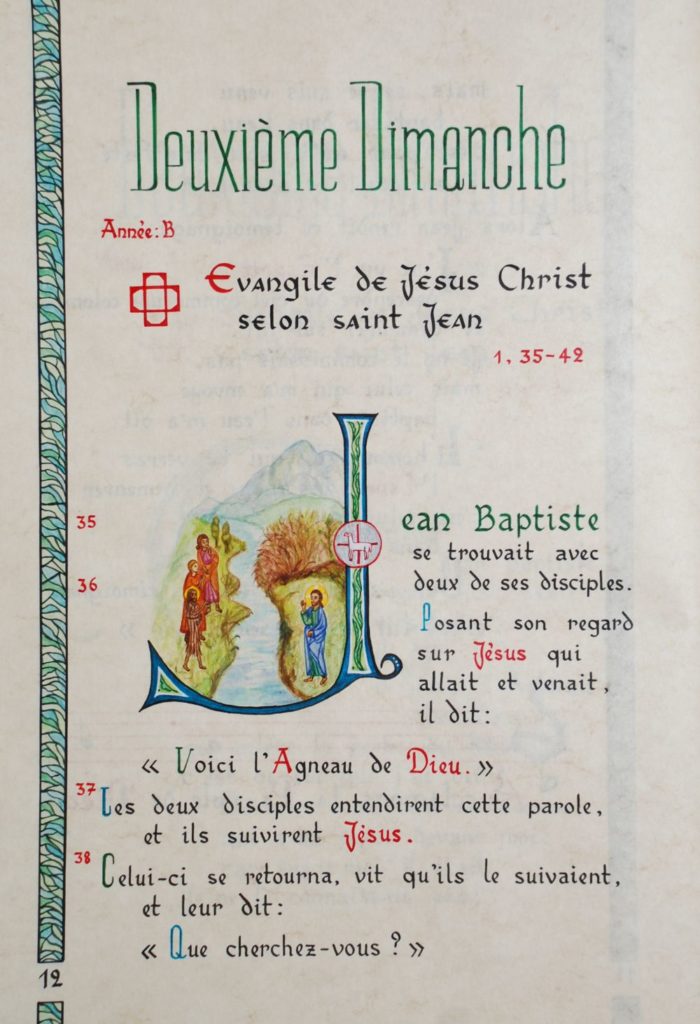 Deuxième Dimanche
Année: B
Evangile de Jésus Christ
selon saint Jean
1, 35-42
35 Jean Baptiste
se trouvait avec
36 deux de ses disciples.
Posant son regard
sur Jésus qui
allait et venait,
il dit:
« Voici l'Agneau de Dieu. »
37 Les deux disciples entendirent cette parole,
et ils suivirent Jésus.
38 Celui-ci se retourna, vit qu'ils le suivaient,
et leur dit:
« Que cherchez-vous ? »
12